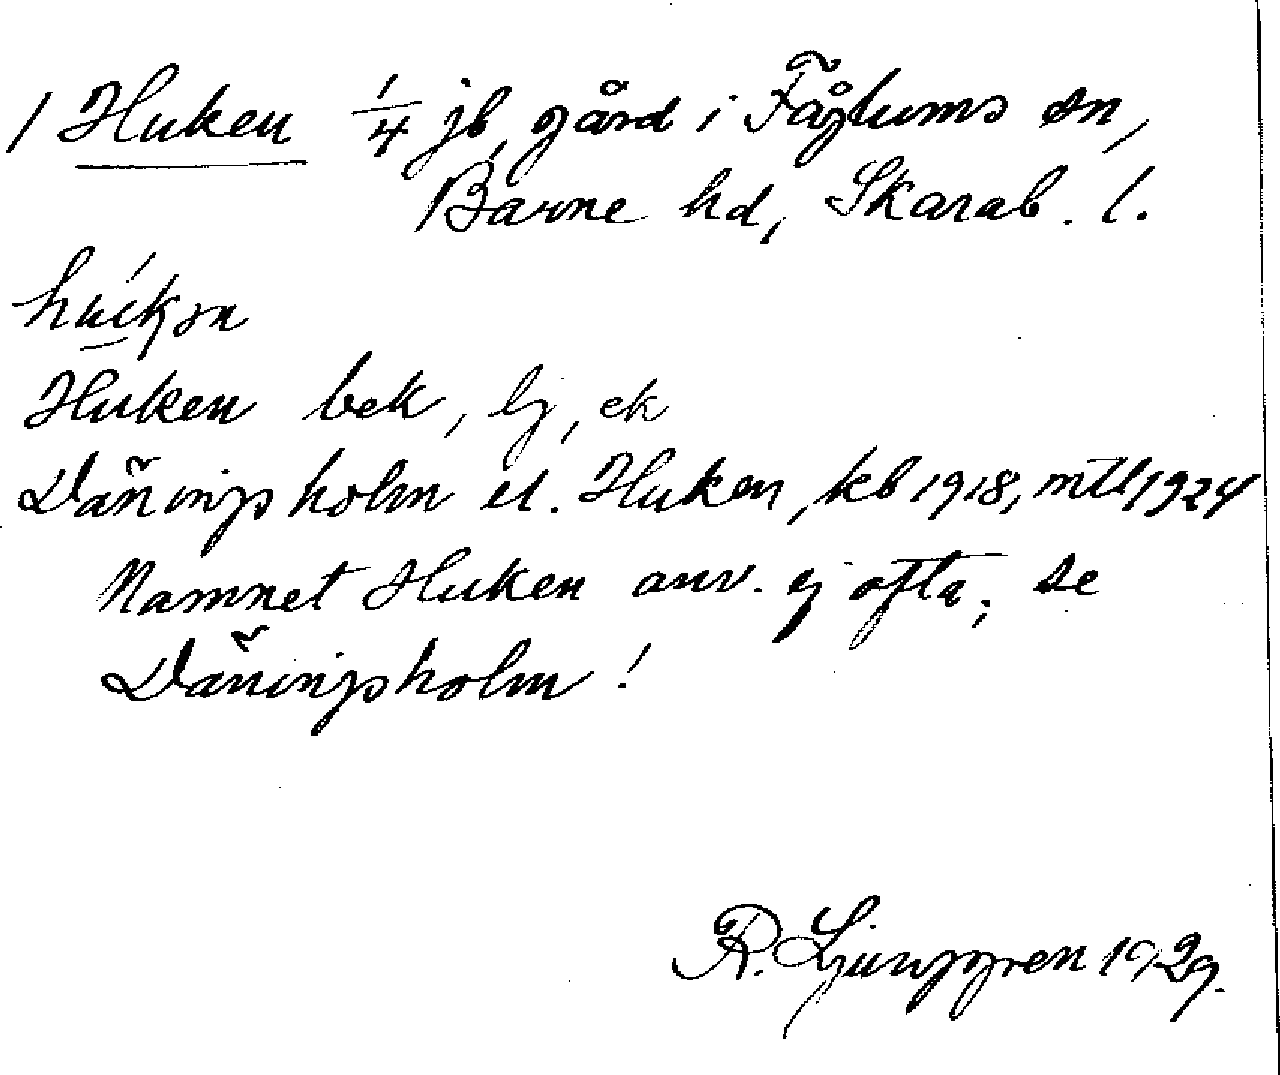 1 Huken 1/4 jb, gård i Fåglums sn,
Barne hd, Skarab. l.
Huken bek, lj, ek
Däningsholm el. Huken, kb 1918, mtl 1924
Namnet Huken anv. ej ofta, se
Däningsholm!
R. Ljunggren 1929.